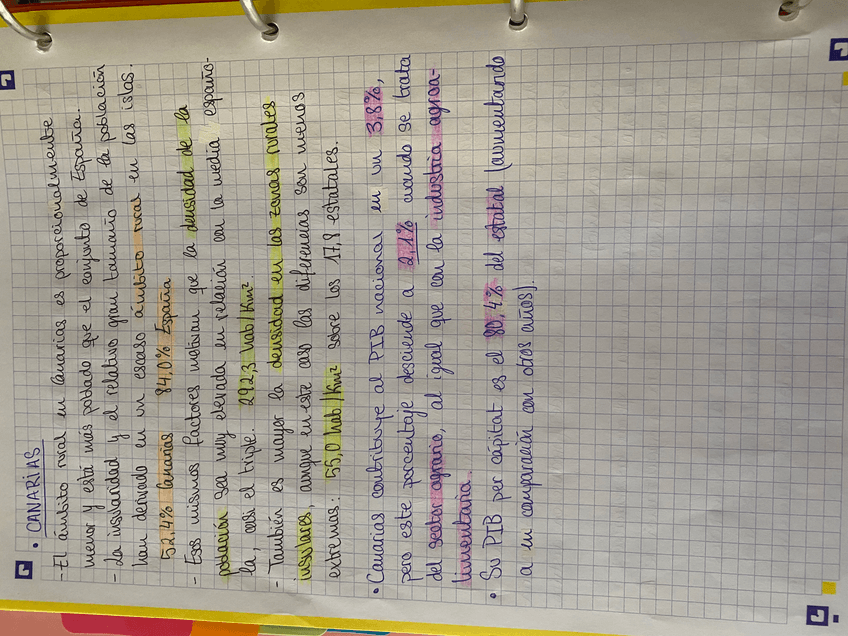 • CANARIAS
- El ámbito rural en Canarias es proporcionalmente
menor y está más poblado que el conjunto de España.
- La insularidad y el relativo gran tamaño de la población
han derivado en un escaso ámbito rural en las islas.
52,4% Canarias 84,0% España
- Esos mismos factores motivan que la densidad de la
población sea muy elevada en relación con la media españo-
la, casi el triple. 292,3 hab/km²
- También es mayor la densidad en las zonas rurales
insulares, aunque en este caso las diferencias son menos
extremas: 55,0 hab/km² sobre los 17,8 estatales.
• Canarias contribuye al PIB nacional en un 3,8%,
pero este porcentaje desciende a 2,1% cuando se trata
del sector agrario, al igual que con la industria agroa-
limentaria.
• Su PIB per cápitat es el 80,4% del estatal (aumentando
a en comparación con otros años).